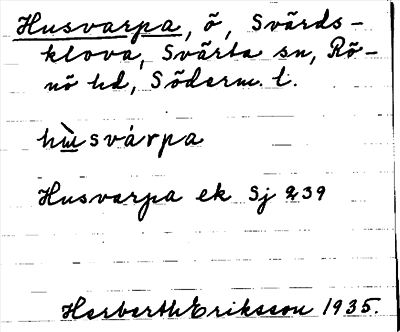 Husvarpa, ö, Svärds-
klova, Svärta sn, Rö-
nö hd, Söderm. l.
hùsvárpa
Husvarpa ek Sj 239
Herberth Eriksson 1935.